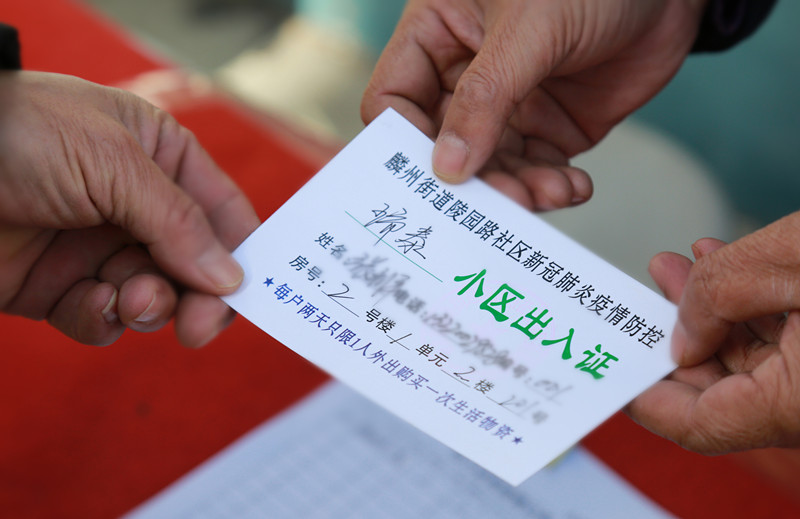 麟州街道陵园路社区新冠肺炎疫情防控
瑞泰 小区出入证
姓名 电话: 编号:001
房号: 2 号楼 1 单元 2 楼 号
★每户两天只限1人外出购买一次生活物资★